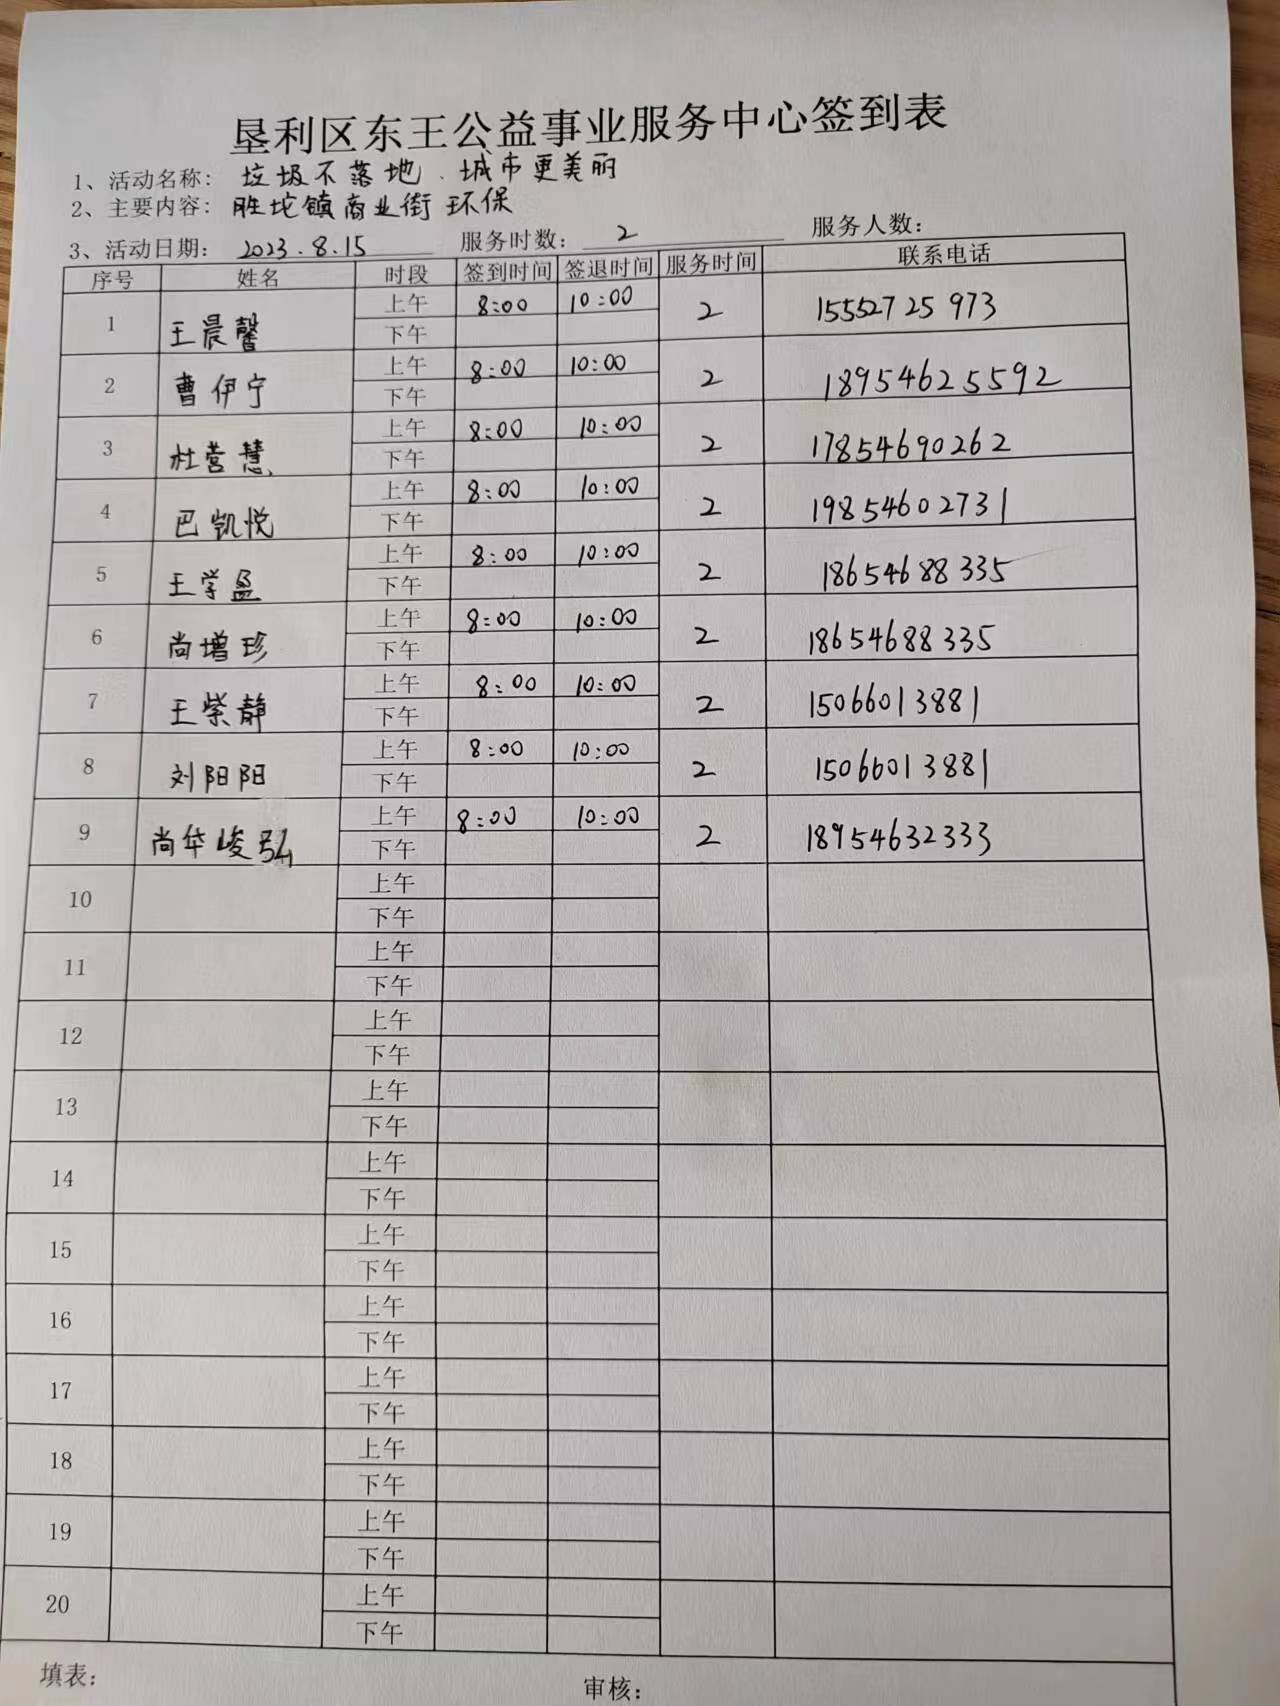 垦利区东王公益事业服务中心签到表
1、活动名称: 垃圾不落地、城市更美丽
2、主要内容: 胜坨镇商业街环保
3、活动日期: 2023.8.15 服务时数: 2 服务人数:
序号 姓名 时段 签到时间 签退时间 服务时间 联系电话
1 王晨馨 上午 8:00 10:00 2 15552725973
下午
2 曹伊宁 上午 8:00 10:00 2 18954625592
下午
3 杜营慧 上午 8:00 10:00 2 17854690262
下午
4 巴凯悦 上午 8:00 10:00 2 19854602731
下午
5 王学盈 上午 8:00 10:00 2 18654688335
下午
6 尚增珍 上午 8:00 10:00 2 18654688335
下午
7 王紫静 上午 8:00 10:00 2 15066013881
下午
8 刘阳阳 上午 8:00 10:00 2 15066013881
下午
9 尚华峻弘 上午 8:00 10:00 2 18954632333
下午
10 上午
下午
11 上午
下午
12 上午
下午
13 上午
下午
14 上午
下午
15 上午
下午
16 上午
下午
17 上午
下午
18 上午
下午
19 上午
下午
20 上午
下午
填表: 审核: